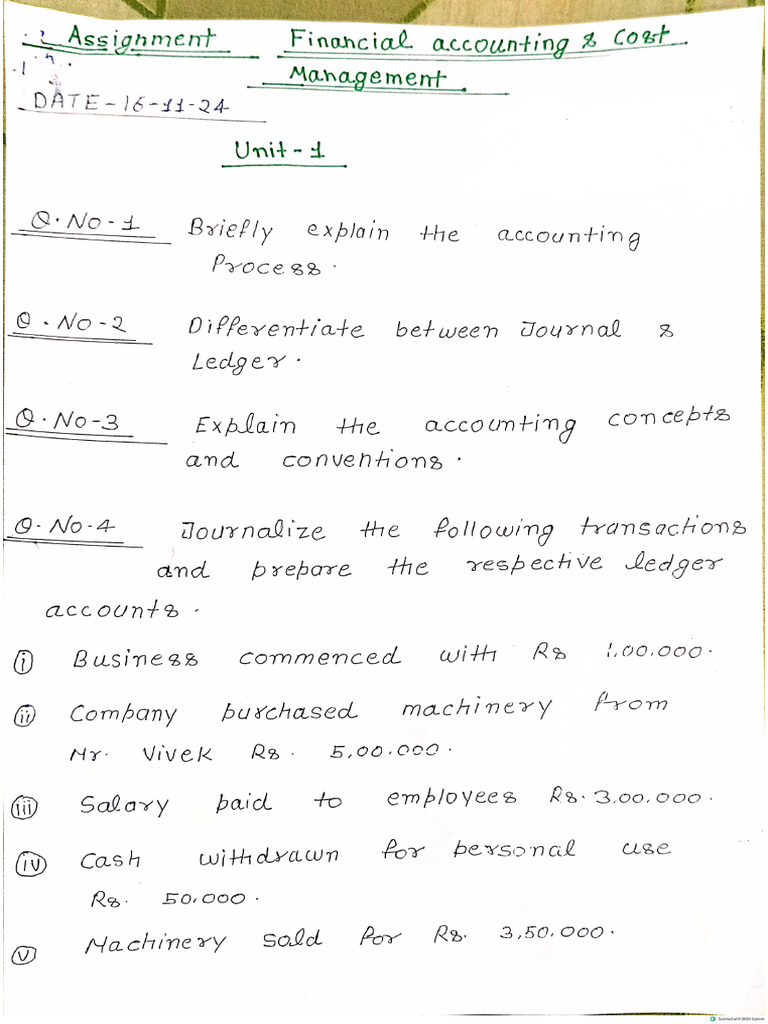 Assignment Financial accounting & Cost
Management
DATE-16-11-24
Unit-1
Q.No-1 Briefly explain the accounting
Process.
Q.No-2 Differentiate between Journal &
Ledger.
Q.No-3 Explain the accounting concepts
and conventions.
Q.No-4 Journalize the following transactions
and prepare the respective ledger
accounts.
(i) Business commenced with Rs 1,00,000.
(ii) Company purchased machinery from
Mr. Vivek Rs. 5,00,000.
(iii) Salary paid to employees Rs. 3,00,000.
(iv) Cash withdrawn for personal use
Rs. 50,000.
(v) Machinery sold for Rs. 3,50,000.
Scanned with OKEN Scanner